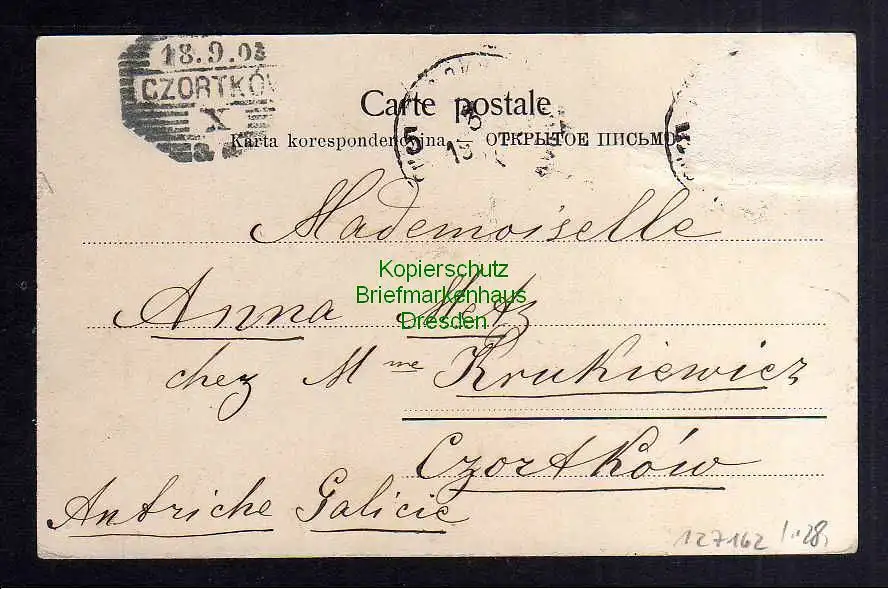 18.9.03
CZORTKÓW
X
Carte postale
Karta korespondencyjna. ОТКРЫТОЕ ПИСЬМО
5
Mademoiselle
Kopierschutz
Briefmarkenhaus
Dresden
Anna Metz
chez Mme Krukiewicz
Czortków
Autriche Galicie
127162